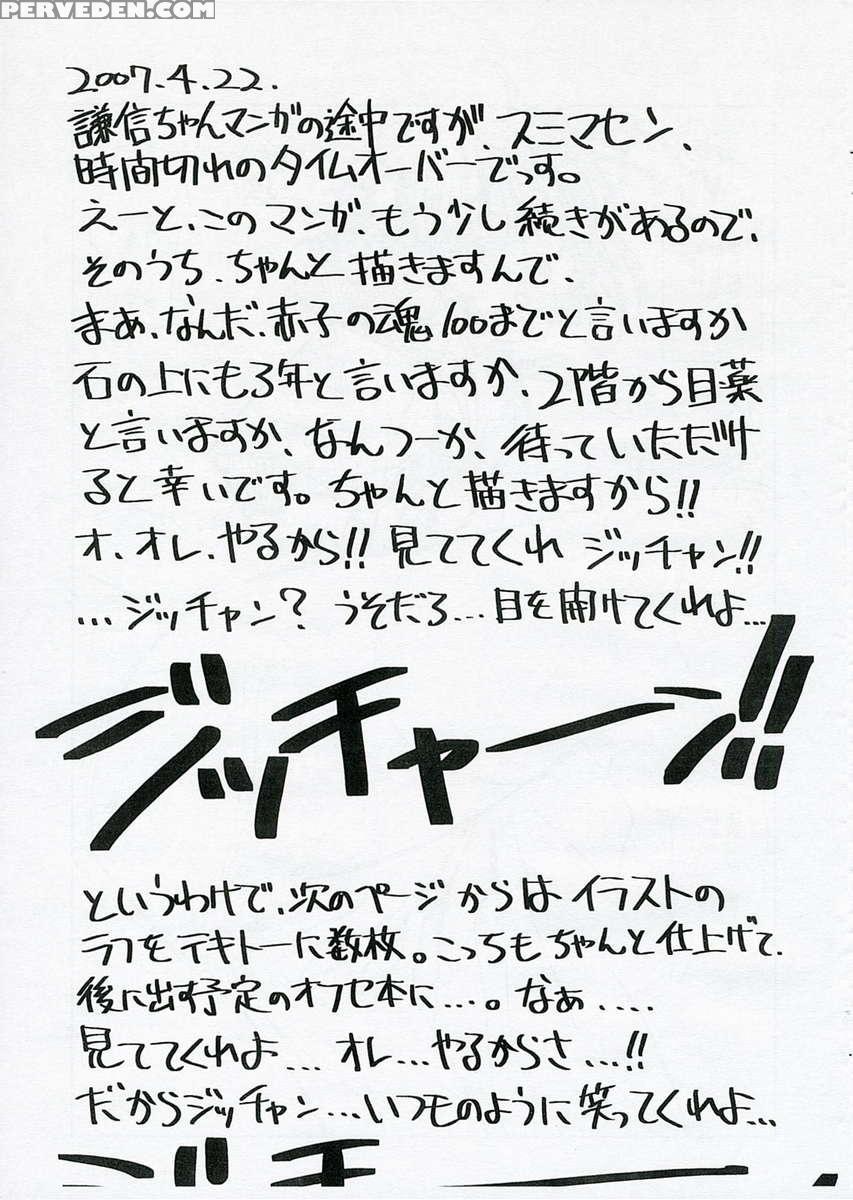 PERVEDEN.COM
2007.4.22.
謙信ちゃんマンガの途中ですが、スミマセン、
時間切れのタイムオーバーでっす。
えーと、このマンガ、もう少し続きがあるので、
そのうち、ちゃんと描きますんで、
まぁ、なんだ、赤子の魂100までと言いますか
石の上にも3年と言いますか、2階から目薬
と言いますか、なんつーか、待っていただけ
ると幸いです。ちゃんと描きますから!!
オ、オレ、やるから!! 見ててくれ ジッチャン!!
…ジッチャン? うそだろ…目を開けてくれよ…
ジッチャーン!!
というわけで、次のページからはイラストの
ラフをテキトーに数枚。こっちもちゃんと仕上げて、
後に出す予定のオフセ本に…。なぁ……
見ててくれよ…オレ…やるからさ…!!
だからジッチャン…いつものように笑ってくれよ…